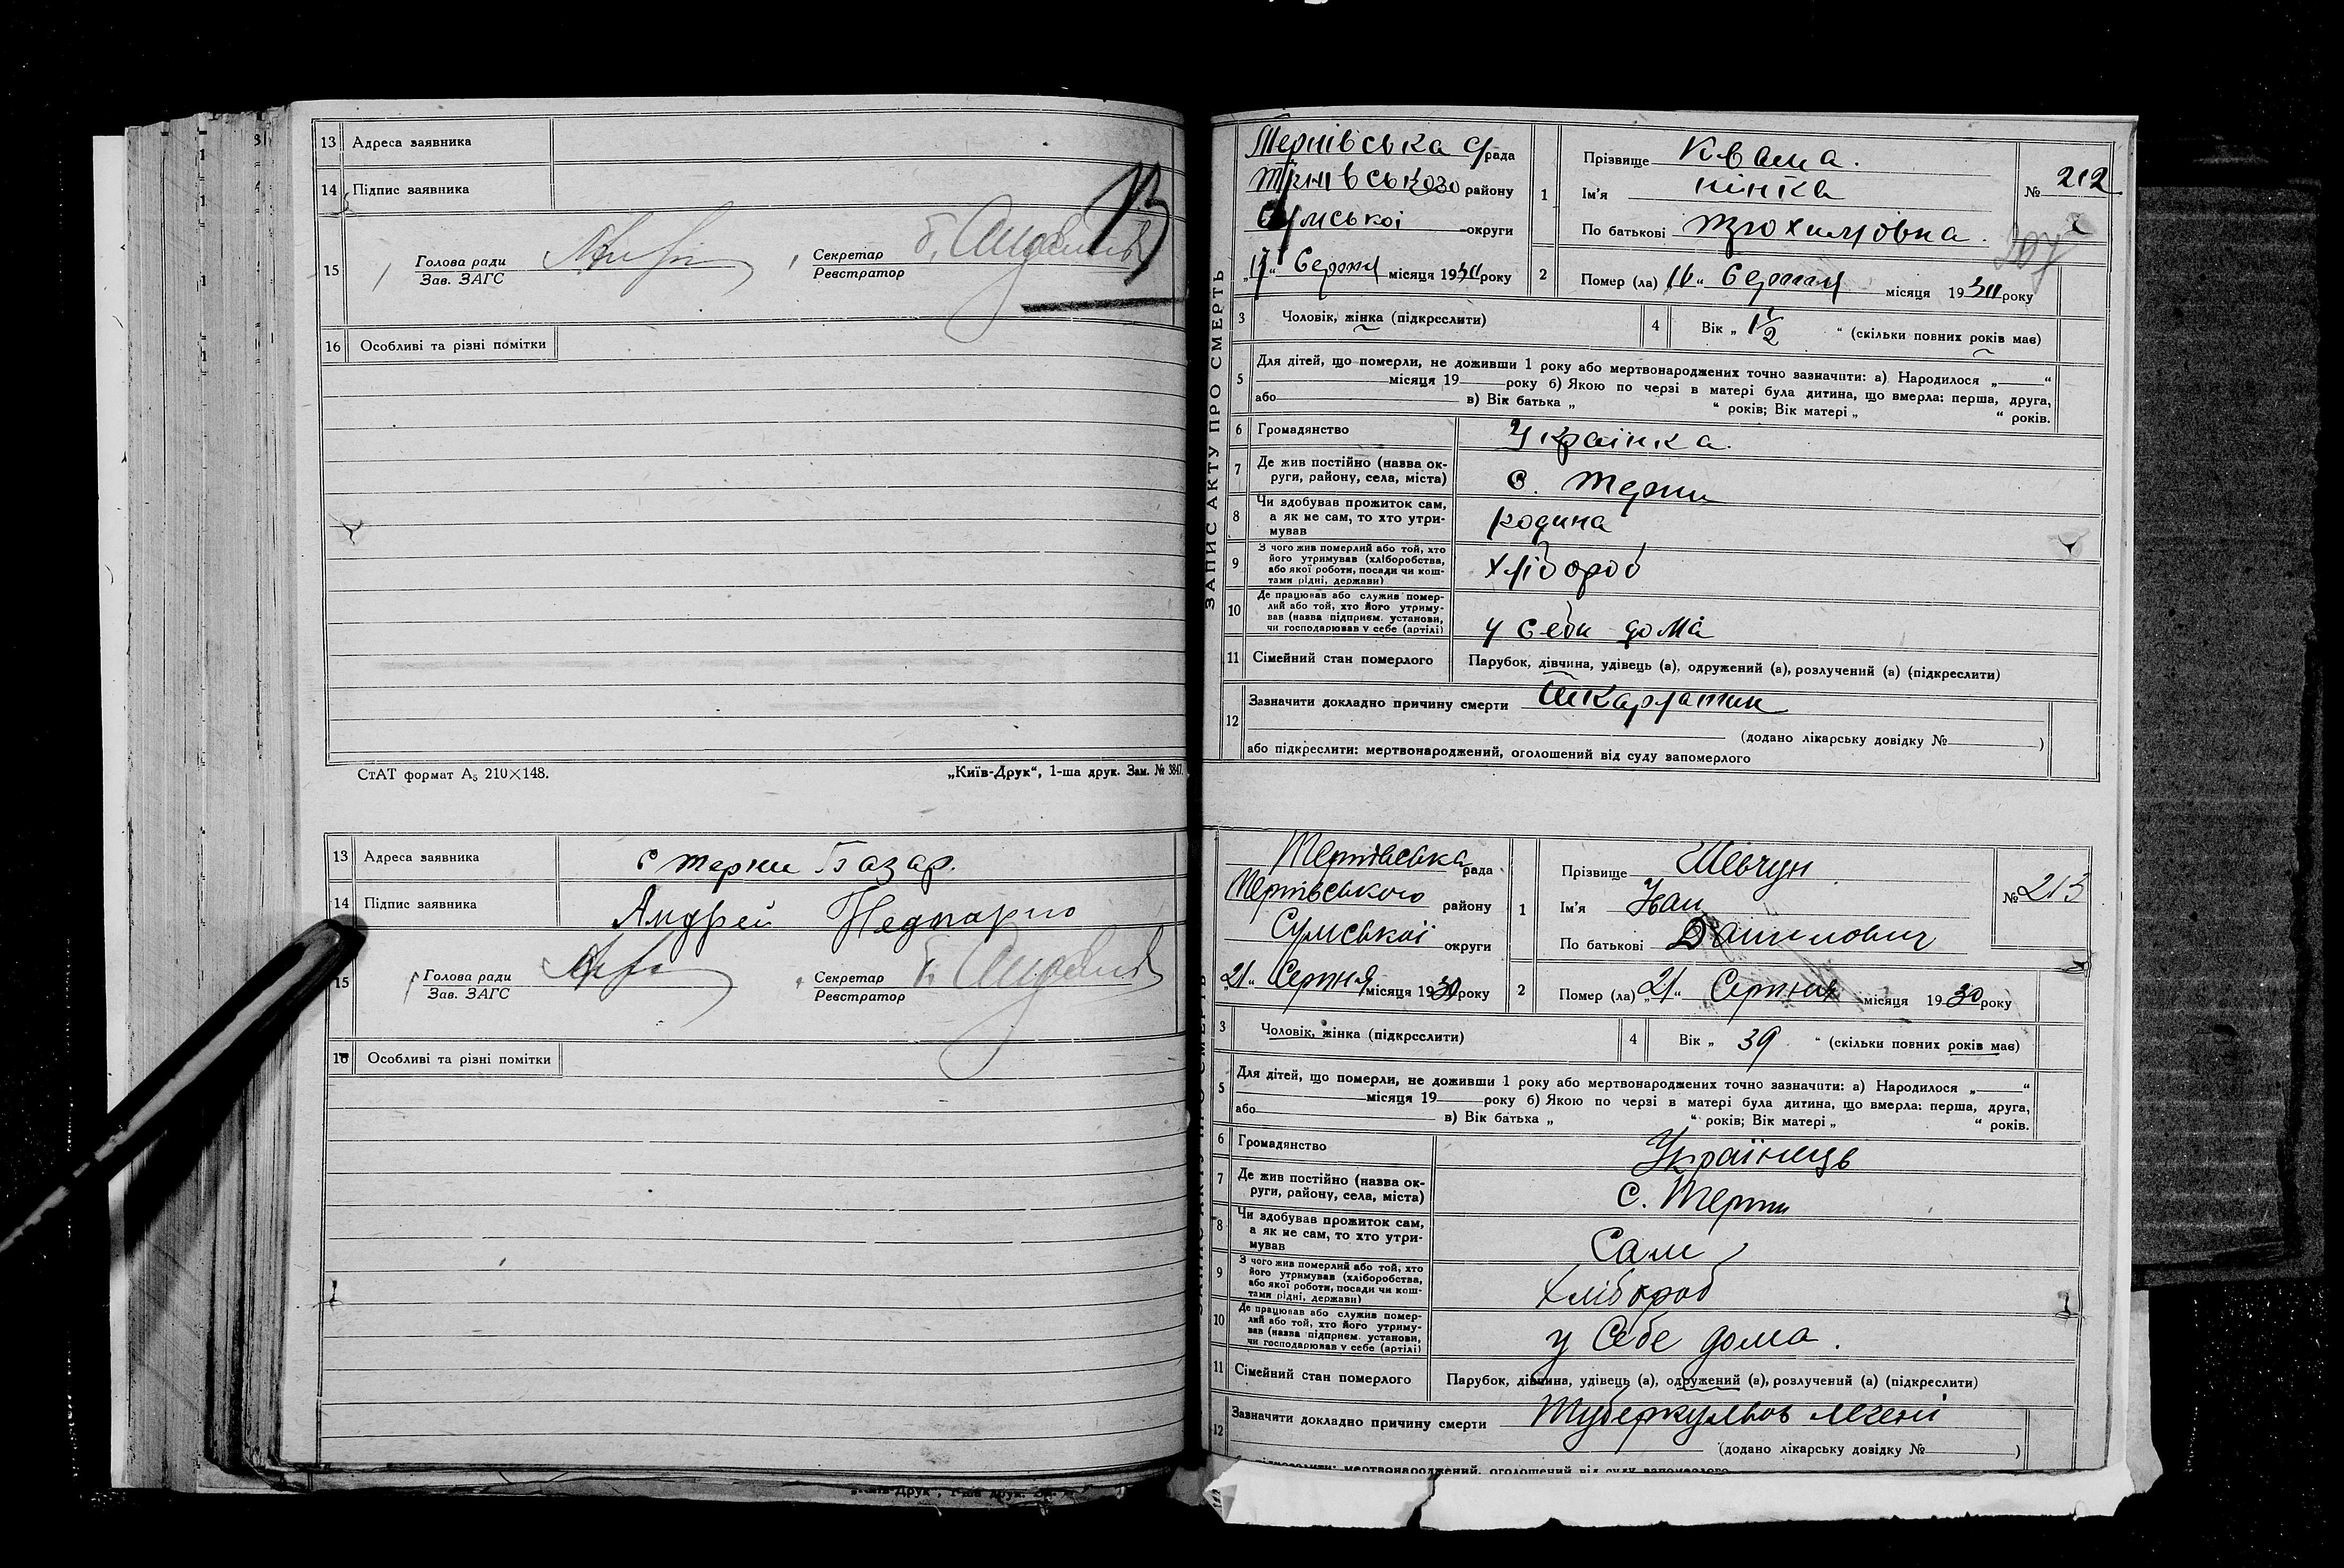 13 Адреса заявника
14 Підпис заявника
15 Голова ради
Зав. ЗАГС
Секретар
Реєстратор
16 Особливі та різні помітки
СтАТ формат А₅ 210×148.
„Київ-Друк“, 1-ша друк. Зам. № 3847.
13 Адреса заявника с терни Базар.
14 Підпис заявника Андрей
15 Голова ради
Зав. ЗАГС
Секретар
Реєстратор
16 Особливі та різні помітки
ЗАПИС АКТУ ПРО СМЕРТЬ
Тернівська С/рада
Тернівського району
Сумської округи
„17“ Серпня місяця 1930 року
1 Прізвище Кваша.
Ім'я
По батькові
№ 212
207
2 Помер (ла) „16“ Серпня місяця 1930 року
3 Чоловік, жінка (підкреслити)
4 Вік „ 1½ “ (скільки повних років має)
5 Для дітей, що померли, не доживши 1 року або мертвонароджених точно зазначити: а) Народилося „ “
місяця 19 року б) Якою по черзі в матері була дитина, що вмерла: перша, друга,
або в) Вік батька „ “ років; Вік матері „ “ років.
6 Громадянство Українка.
7 Де жив постійно (назва округи, району, села, міста) с. Терни
8 Чи здобував прожиток сам, а як не сам, то хто утримував родина
9 З чого жив померлий або той, хто його утримував (хліборобства, або якої роботи, посади чи коштами рідні, держави) хлібороб
10 Де працював або служив померлий або той, хто його утримував (назва підприєм. установи, чи господарював у себе (артілі) у себи дома
11 Сімейний стан померлого Парубок, дівчина, удівець (а), одружений (а), розлучений (а) (підкреслити)
12 Зазначити докладно причину смерти Шкарлатин
(додано лікарську довідку № )
або підкреслити: мертвонароджений, оголошений від суду запомерлого
Тернівська рада
Тернівського району
Сумської округи
„21“ Серпня місяця 1930 року
1 Прізвище Шевчун
Ім'я Іван
По батькові Данилович
№ 213
2 Помер (ла) „21“ Серпня місяця 1930 року
3 Чоловік, жінка (підкреслити)
4 Вік „ 39 “ (скільки повних років має)
5 Для дітей, що померли, не доживши 1 року або мертвонароджених точно зазначити: а) Народилося „ “
місяця 19 року б) Якою по черзі в матері була дитина, що вмерла: перша, друга,
або в) Вік батька „ “ років; Вік матері „ “ років.
6 Громадянство Українець
7 Де жив постійно (назва округи, району, села, міста) С. Терни
8 Чи здобував прожиток сам, а як не сам, то хто утримував Сам
9 З чого жив померлий або той, хто його утримував (хліборобства, або якої роботи, посади чи коштами рідні, держави) хлібороб
10 Де працював або служив померлий або той, хто його утримував (назва підприєм. установи, чи господарював у себе (артілі) у себе дома.
11 Сімейний стан померлого Парубок, дівчина, удівець (а), одружений (а), розлучений (а) (підкреслити)
12 Зазначити докладно причину смерти Туберкульов легені
(додано лікарську довідку № )
мертвонароджений, оголошений від суду запомерлого